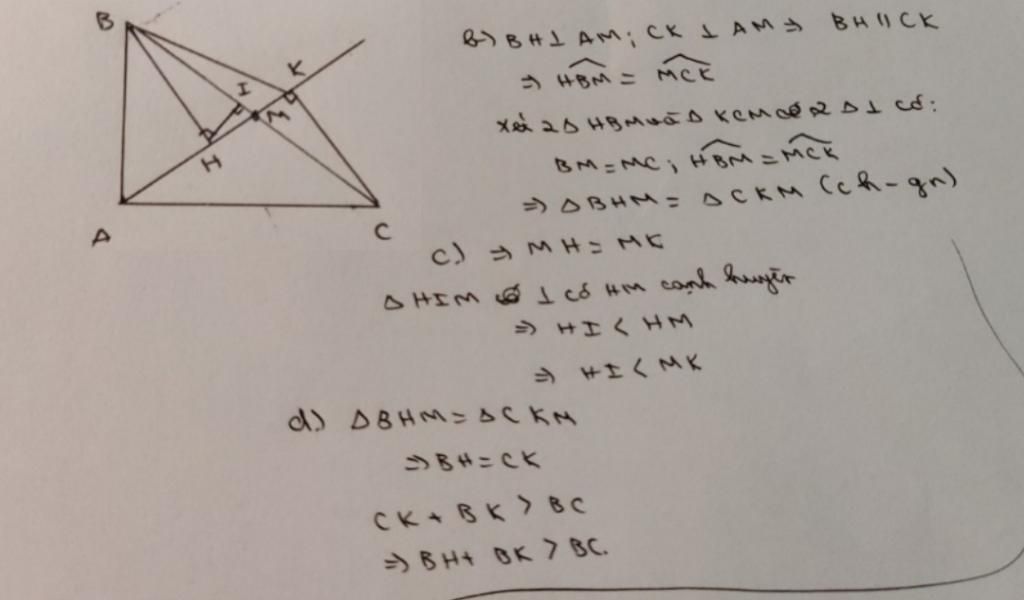 B
K
I
M
H
A
C
b) BH ⊥ AM ; CK ⊥ AM ⇒ BH // CK
⇒ \widehat{HBM} = \widehat{MCK}
xét 2 Δ HBM và Δ KCM có 2 Δ ⊥ có:
BM = MC ; \widehat{HBM} = \widehat{MCK}
⇒ Δ BHM = Δ CKM (ch - gn)
c) ⇒ MH = MK
Δ HIM ⊥ có HM cạnh huyền
⇒ HI < HM
⇒ HI < MK
d) Δ BHM = Δ CKM
⇒ BH = CK
CK + BK > BC
⇒ BH + BK > BC.